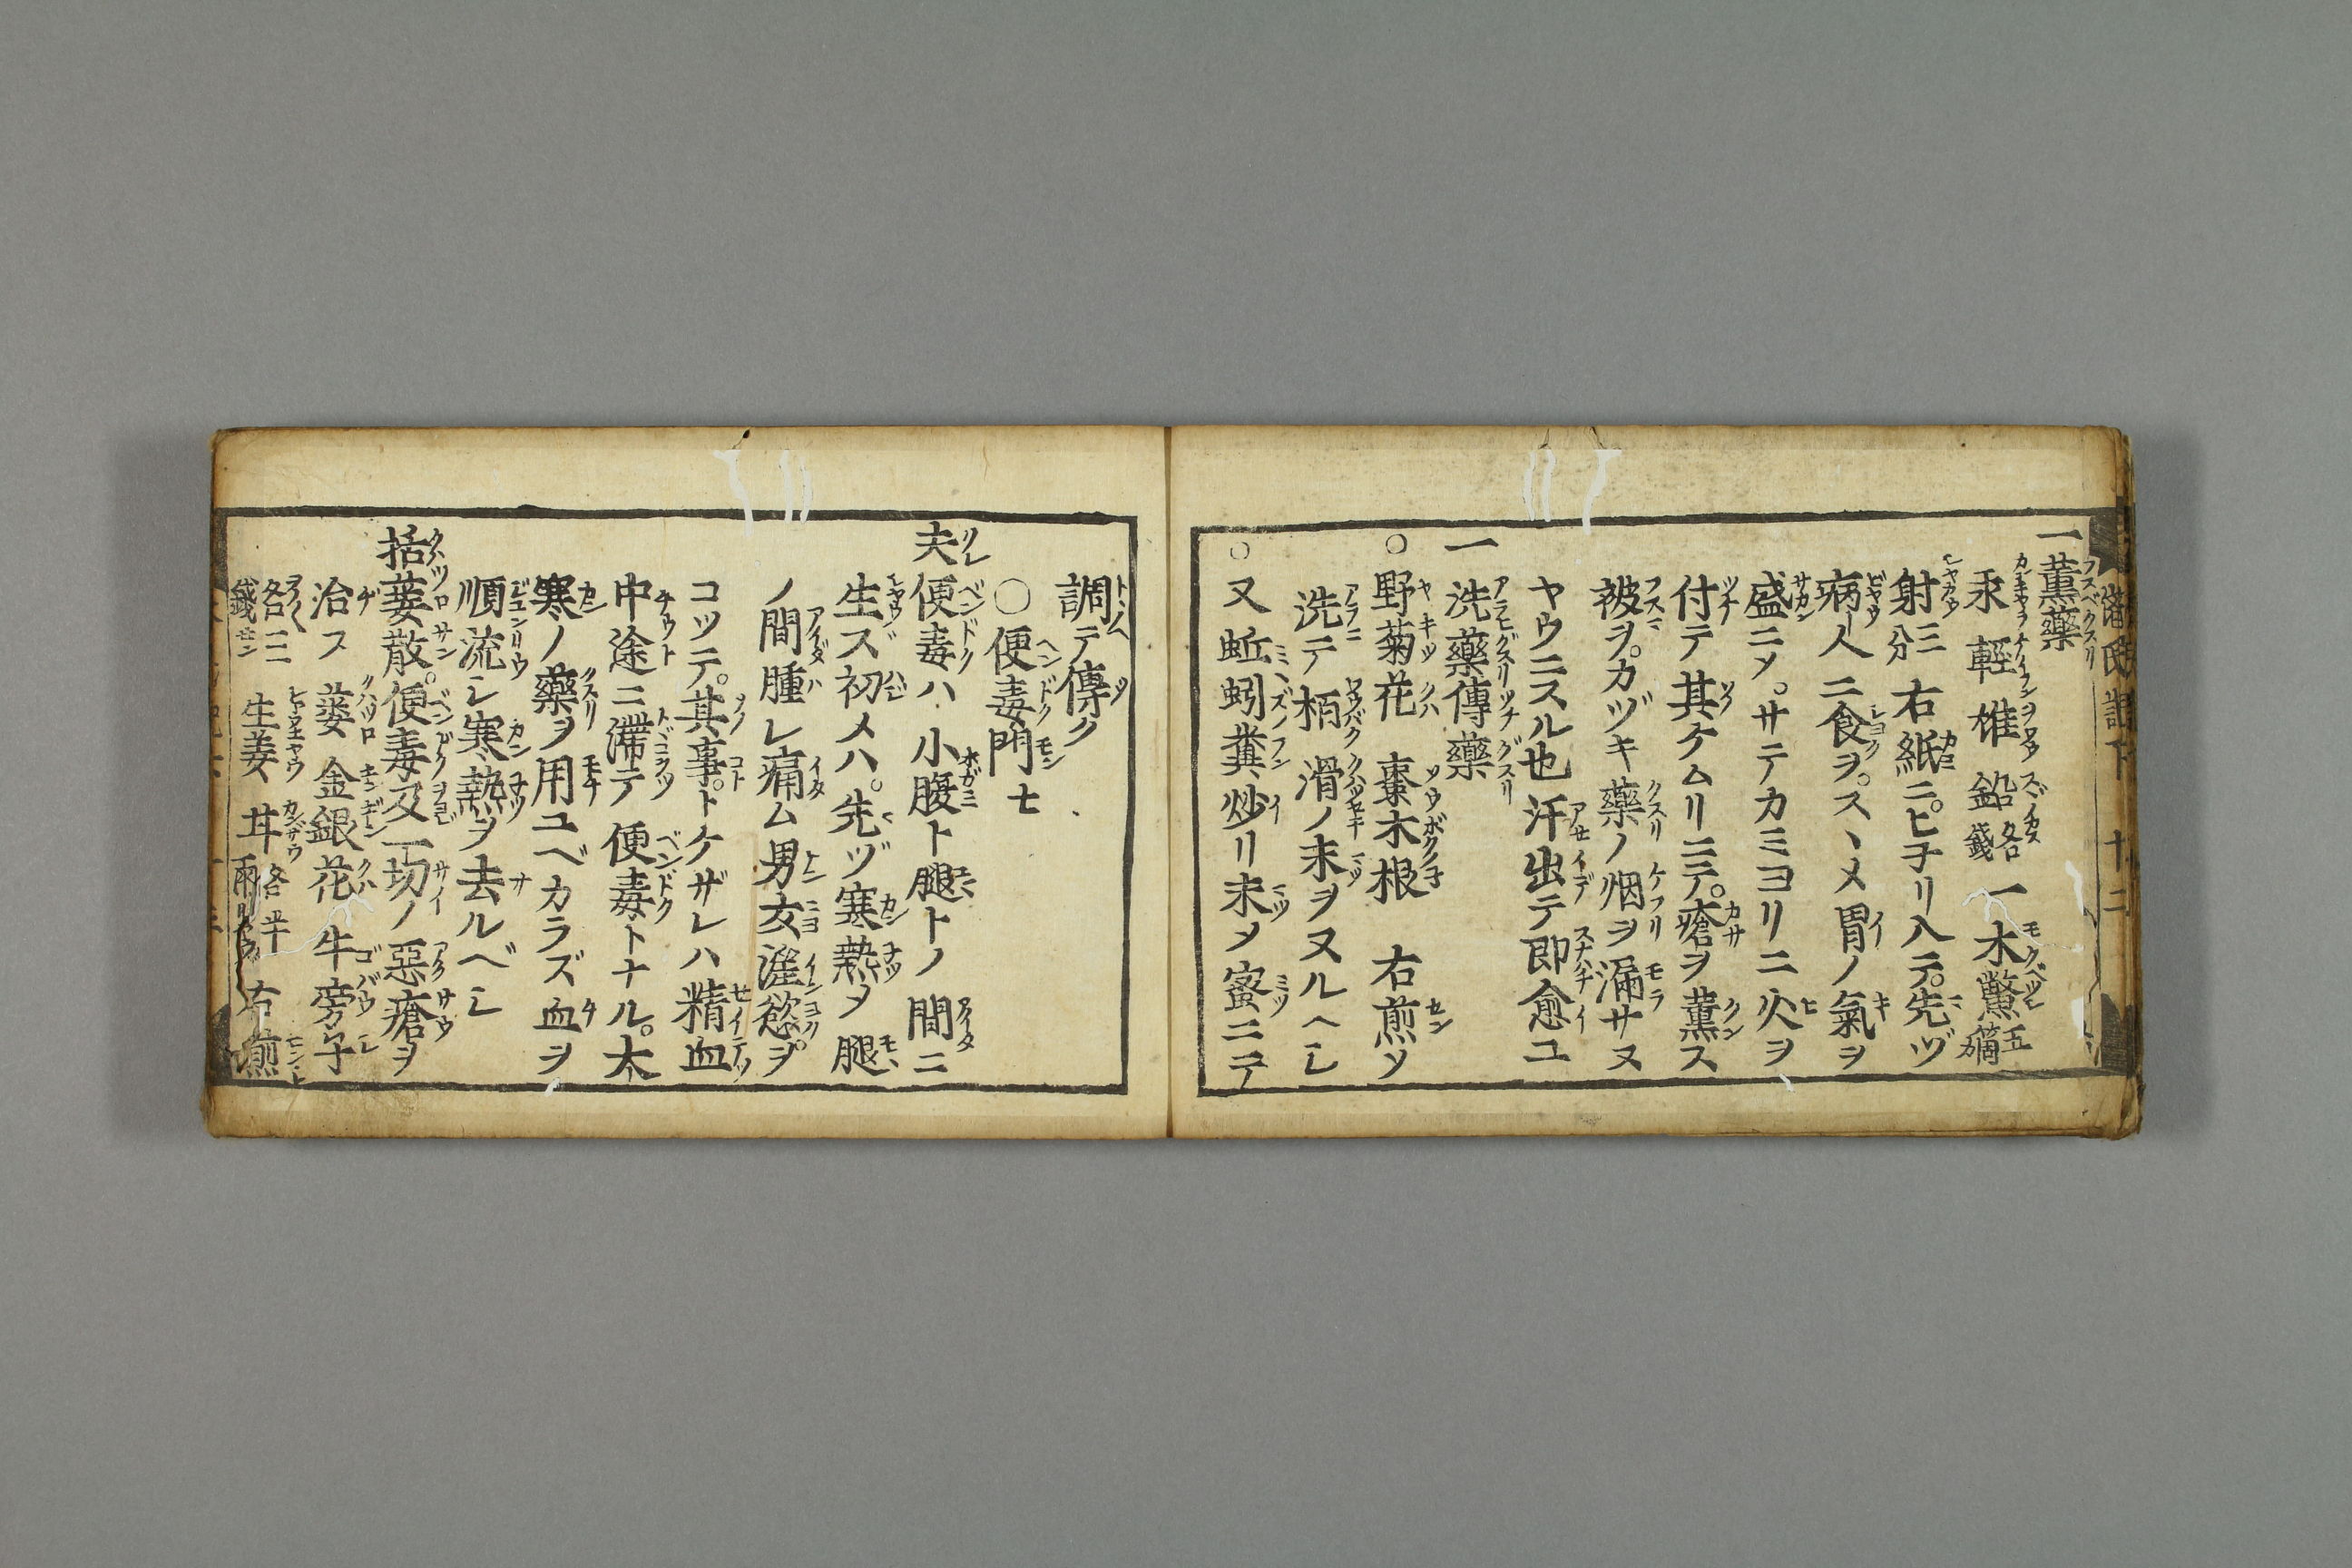 一薫藥
汞 輕 雄 鉛各一錢 木鱉五箇
射三分 右紙ニ。ヒ子リ入テ。先ヅ
病人ニ食ヲ。スヽメ胃ノ氣ヲ
盛ニメ。サテカミヨリニ火ヲ
付テ其ケムリニテ。瘡ヲ薫ス
被ヲ。カヅキ藥ノ烟ヲ漏サヌ
ヤウニスル也汗出テ即愈ユ
一洗藥傳藥
○野菊花 棗木根 右煎ソ
洗テ栢 滑ノ末ヲヌルヘシ
○又蚯蚓糞炒リ末メ蜜ニテ
調テ傳ク
○便毒門七
夫便毒ハ小腹ト腿トノ間ニ
生ス初メハ。先ヅ寒熱メ腿
ノ間腫レ痛ム男女淫慾ヲ
コツテ。其事。トケザレハ精血
中途ニ滯テ便毒トナル。太
寒ノ藥ヲ用ユベカラズ血ヲ
順流シ寒熱ヲ去ルベシ
括蔞散。便毒及一切ノ惡瘡ヲ
治ス 蔞 金銀花 牛旁子
各三錢 生姜 甘各半兩 右煎